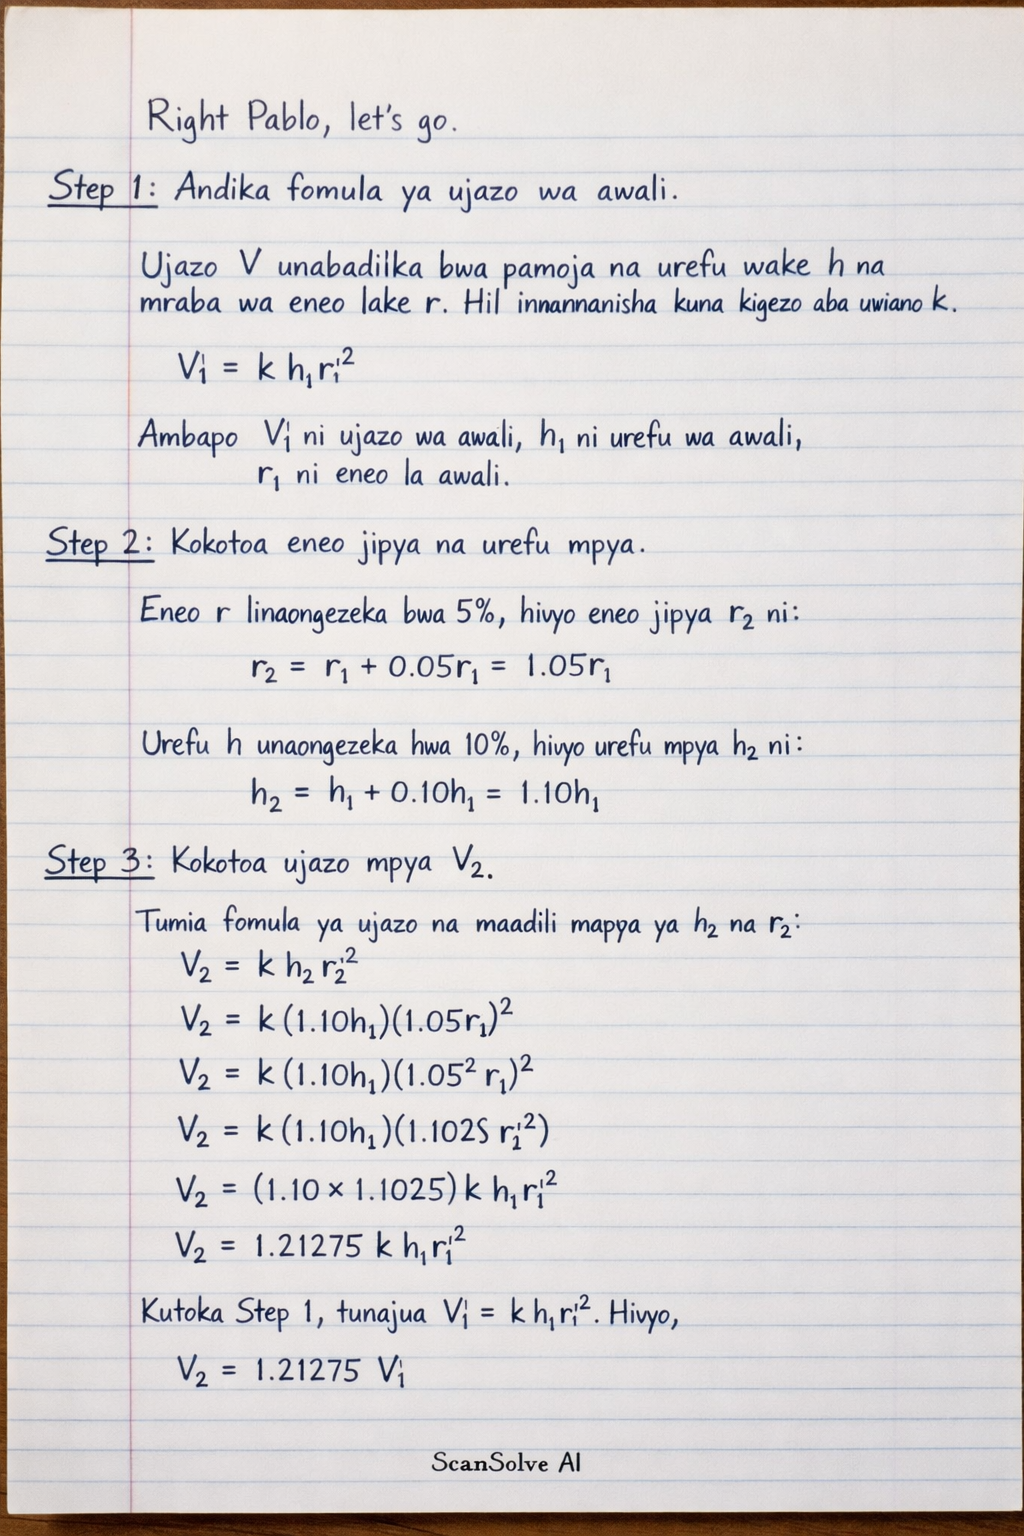 Right Pablo, let's go.
Step 1: Andika fomula ya ujazo wa awali.
Ujazo V unabadilka bwa pamoja na urefu wake h na
mraba wa eneo lake r. Hil innannanisha kuna kigezo aba uwiano k.
V₁ = k h₁ r₁²
Ambapo V₁ ni ujazo wa awali, h₁ ni urefu wa awali,
r₁ ni eneo la awali.
Step 2: Kokotoa eneo jipya na urefu mpya.
Eneo r linaongezeka bwa 5%, hivyo eneo jipya r₂ ni:
r₂ = r₁ + 0.05r₁ = 1.05r₁
Urefu h unaongezeka hwa 10%, hivyo urefu mpya h₂ ni:
h₂ = h₁ + 0.10h₁ = 1.10h₁
Step 3: Kokotoa ujazo mpya V₂.
Tumia fomula ya ujazo na maadili mappa ya h₂ na r₂:
V₂ = k h₂ r₂²
V₂ = k (1.10h₁)(1.05r₁)²
V₂ = k (1.10h₁)(1.05² r₁)²
V₂ = k (1.10h₁)(1.102S r₁²)
V₂ = (1.10 × 1.1025) k h₁ r₁²
V₂ = 1.21275 k h₁ r₁²
Kutoka Step 1, tunajua V₁ = k h₁ r₁². Hivyo,
V₂ = 1.21275 V₁
ScanSolve AI